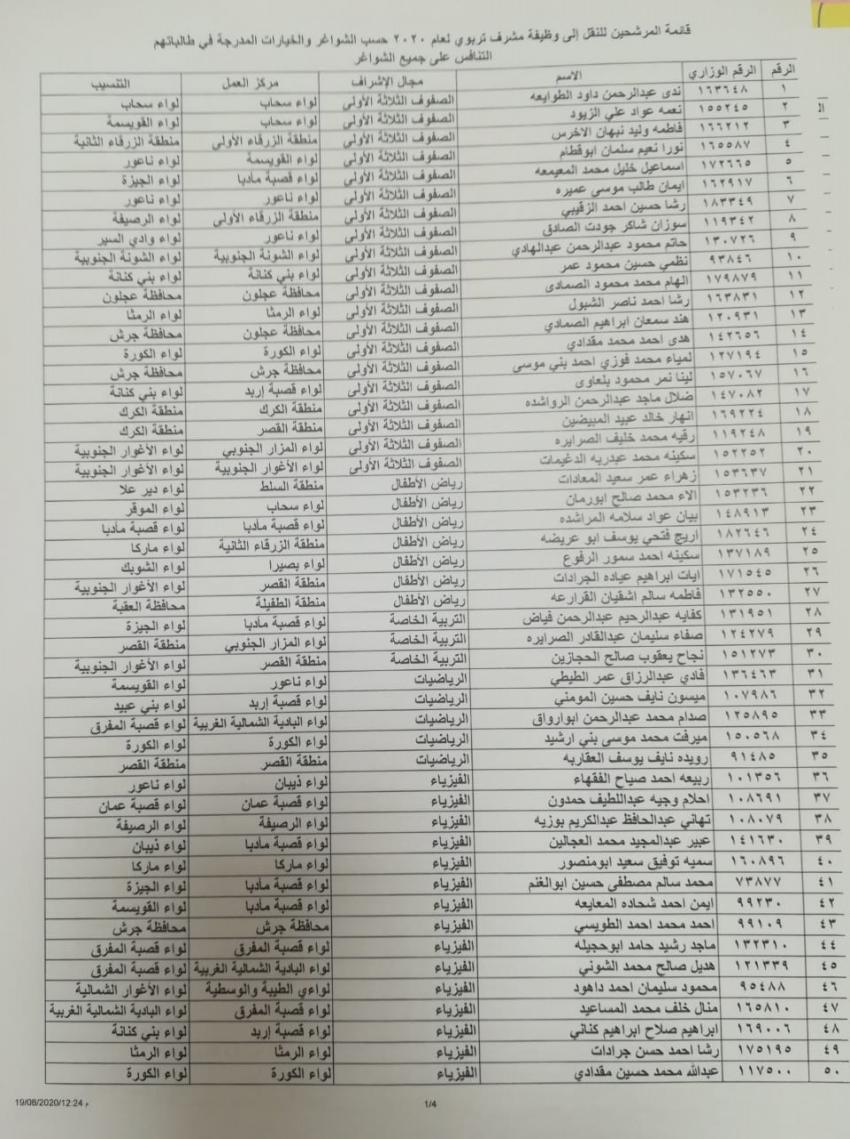 قائمة المرشحين للنقل إلى وظيفة مشرف تربوي لعام ٢٠٢٠ حسب الشواغر والخيارات المدرجة في طالباتهم
التنافس على جميع الشواغر
الرقم الرقم الوزاري الاسم مجال الإشراف مركز العمل التنسيب
١ ١٦٣٦٤٨ ندى عبدالرحمن داود الطوايعه الصفوف الثلاثة الأولى لواء سحاب لواء سحاب
٢ ١٥٥٢٤٥ نعمه عواد علي الزيود الصفوف الثلاثة الأولى لواء سحاب لواء القويسمة
٣ ١٦٦٢١٢ فاطمه وليد نبهان الاخرس الصفوف الثلاثة الأولى منطقة الزرقاء الأولى منطقة الزرقاء الثانية
٤ ١٦٥٥٨٧ نورا نعيم سلمان ابوقطام الصفوف الثلاثة الأولى لواء القويسمة لواء ناعور
٥ ١٧٢٦٦٥ اسماعيل خليل محمد المعيمعه الصفوف الثلاثة الأولى لواء قصبة مادبا لواء الجيزة
٦ ١٦٢٩١٧ ايمان طالب موسى عميره الصفوف الثلاثة الأولى لواء ناعور لواء ناعور
٧ ١٨٣٣٤٩ رشا حسين احمد الزقيبي الصفوف الثلاثة الأولى منطقة الزرقاء الأولى لواء الرصيفة
٨ ١١٩٣٤٢ سوزان شاكر جودت الصادق الصفوف الثلاثة الأولى لواء ناعور لواء وادي السير
٩ ١٣٠٧٢٦ حاتم محمود عبدالرحمن عبدالهادي الصفوف الثلاثة الأولى لواء الشونة الجنوبية لواء الشونة الجنوبية
١٠ ٩٣٨٤٦ نظمي حسين محمود عمر الصفوف الثلاثة الأولى لواء بني كنانة لواء بني كنانة
١١ ١٧٩٨٧٩ الهام محمد محمود الصمادى الصفوف الثلاثة الأولى محافظة عجلون محافظة عجلون
١٢ ١٦٣٨٣١ رشا احمد ناصر الشبول الصفوف الثلاثة الأولى لواء الرمثا لواء الرمثا
١٣ ١٢٠٩٣١ هند سمعان ابراهيم الصمادي الصفوف الثلاثة الأولى محافظة عجلون محافظة جرش
١٤ ١٤٢٦٥٦ هدى احمد محمد مقدادي الصفوف الثلاثة الأولى لواء الكورة لواء الكورة
١٥ ١٢٧١٩٤ لمياء محمد فوزي احمد بني موسى الصفوف الثلاثة الأولى محافظة جرش محافظة جرش
١٦ ١٥٧٠٦٧ لينا نمر محمود بلعاوى الصفوف الثلاثة الأولى لواء قصبة إربد لواء بني كنانة
١٧ ١٤٧٠٨٢ ضلال ماجد عبدالرحمن الرواشده الصفوف الثلاثة الأولى منطقة الكرك منطقة الكرك
١٨ ١٦٩٢٢٤ انهار خالد عبيد المبيضين الصفوف الثلاثة الأولى منطقة القصر منطقة الكرك
١٩ ١١٩٢٤٨ رقيه محمد خليف الصرايره الصفوف الثلاثة الأولى لواء المزار الجنوبي لواء الأغوار الجنوبية
٢٠ ١٥٢٢٥٢ سكينه محمد عبدربه الدغيمات الصفوف الثلاثة الأولى لواء الأغوار الجنوبية لواء الأغوار الجنوبية
٢١ ١٥٣٦٣٧ زهراء عمر سعيد المعادات رياض الأطفال منطقة السلط لواء دير علا
٢٢ ١٥٣٢٣٦ الاء محمد صالح ابورمان رياض الأطفال لواء سحاب لواء الموقر
٢٣ ١٤٨٩١٣ بيان عواد سلامه المراشده رياض الأطفال لواء قصبة مادبا لواء قصبة مادبا
٢٤ ١٨٢٦٤٦ اريج فتحي يوسف ابو عريضه رياض الأطفال منطقة الزرقاء الثانية لواء ماركا
٢٥ ١٣٧١٨٩ سكينه احمد سمور الرفوع رياض الأطفال لواء بصيرا لواء الشوبك
٢٦ ١٧١٥٤٥ ايات ابراهيم عياده الجرادات رياض الأطفال منطقة القصر لواء الأغوار الجنوبية
٢٧ ١٣٢٥٥٠ فاطمه سالم اشقيان القرارعه رياض الأطفال منطقة الطفيلة محافظة العقبة
٢٨ ١٣١٩٥١ كفايه عبدالرحيم عبدالرحمن فياض التربية الخاصة لواء قصبة مادبا لواء الجيزة
٢٩ ١٢٤٢٧٩ صفاء سليمان عبدالقادر الصرايره التربية الخاصة لواء المزار الجنوبي منطقة القصر
٣٠ ١٥١٢٧٣ نجاح يعقوب صالح الحجازين التربية الخاصة منطقة القصر لواء الأغوار الجنوبية
٣١ ١٣٦٤٦٣ فادي عبدالرزاق عمر الطيطي الرياضيات لواء ناعور لواء القويسمة
٣٢ ١٠٧٩٨٦ ميسون نايف حسين المومني الرياضيات لواء قصبة إربد لواء بني عبيد
٣٣ ١٢٥٨٩٥ صدام محمد عبدالرحمن ابوارواق الرياضيات لواء البادية الشمالية الغربية لواء قصبة المفرق
٣٤ ١٥٠٥٦٨ ميرفت محمد موسى بني ارشيد الرياضيات لواء الكورة لواء الكورة
٣٥ ٩١٤٨٥ رويده نايف يوسف العقاربه الرياضيات منطقة القصر منطقة القصر
٣٦ ١٠١٣٥٦ ربيعه احمد صياح الفقهاء الفيزياء لواء ذيبان لواء ناعور
٣٧ ١٠٨٦٩١ احلام وجيه عبداللطيف حمدون الفيزياء لواء قصبة عمان لواء قصبة عمان
٣٨ ١٠٨٠٧٩ تهاني عبدالحافظ عبدالكريم بوزيه الفيزياء لواء الرصيفة لواء الرصيفة
٣٩ ١٤١٦٣٠ عبير عبدالمجيد محمد العجالين الفيزياء لواء قصبة مادبا لواء ذيبان
٤٠ ١٦٠٨٩٦ سميه توفيق سعيد ابومنصور الفيزياء لواء ماركا لواء ماركا
٤١ ٧٣٨٧٧ محمد سالم مصطفى حسين ابوالغنم الفيزياء لواء قصبة مادبا لواء الجيزة
٤٢ ٩٩٢٣٠ ايمن احمد شحاده المعايعه الفيزياء لواء قصبة مادبا لواء القويسمة
٤٣ ٩٩١٠٩ احمد محمد احمد الطويسي الفيزياء محافظة جرش محافظة جرش
٤٤ ١٣٢٣١٠ ماجد رشيد حامد ابوحجيله الفيزياء لواء قصبة المفرق لواء قصبة المفرق
٤٥ ١٢١٣٣٩ هديل صالح محمد الشوني الفيزياء لواء البادية الشمالية الغربية لواء قصبة المفرق
٤٦ ٩٥٤٨٨ محمود سليمان احمد داهود الفيزياء لواءي الطيبة والوسطية لواء الأغوار الشمالية
٤٧ ١٦٥٨١٠ منال خلف محمد المساعيد الفيزياء لواء قصبة المفرق لواء البادية الشمالية الغربية
٤٨ ١٦٩٠٠٦ ابراهيم صلاح ابراهيم كناني الفيزياء لواء قصبة إربد لواء بني كنانة
٤٩ ١٧٥١٩٥ رشا احمد حسن جرادات الفيزياء لواء الرمثا لواء الرمثا
٥٠ ١١٧٥٠٠ عبدالله محمد حسين مقدادي الفيزياء لواء الكورة لواء الكورة
1/4
19/08/2020/12:24 م